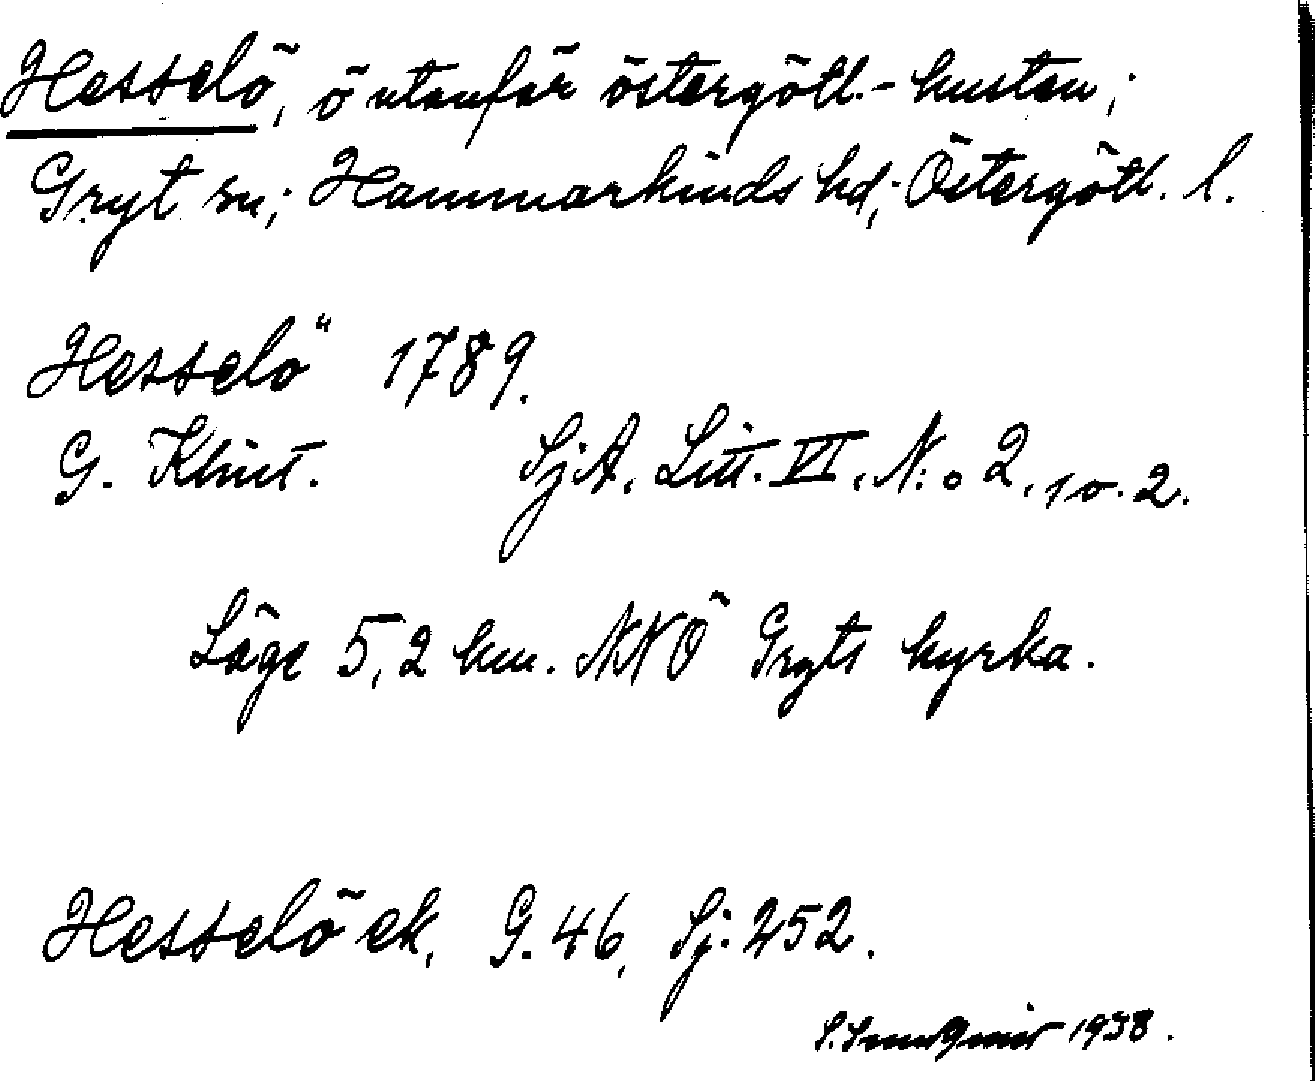 Hesselö, ö utanför östergötl.-kusten;
Gryt sn; Hammarkinds hd; Östergötl. l.
Hesselö" 1789.
G. Klint. SjA. Litt. VI. N:o 2. 1 o. 2.
Läge 5,2 km. NNÖ Gryts kyrka.
Hesselö ek. G. 46. Sj. 252.
1938.